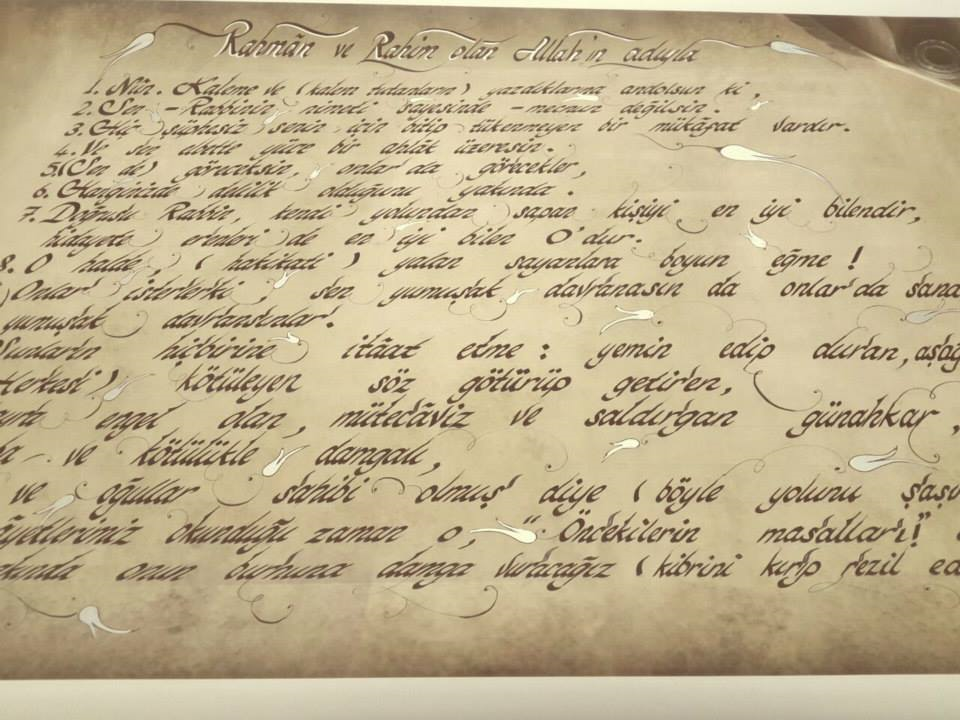 Rahmân ve Rahîm olan Allah'ın adıyla
1. Nûn. Kaleme ve (kalem tutanların) yazdıklarına andolsun ki,
2. Sen - Rabbinin nimeti sayesinde - mecnun değilsin.
3. Hiç şüphesiz senin için bitip tükenmeyen bir mükâfat vardır.
4. Ve sen elbette yüce bir ahlâk üzeresin.
5. (Sen de) göreceksin, onlar da görecekler,
6. Hanginizde delilik olduğunu yakında.
7. Doğrusu Rabbin, kendi yolundan sapan kişiyi en iyi bilendir,
hidayete erenleri de en iyi bilen O'dur.
8. O halde, (hakikati) yalan sayanlara boyun eğme!
Onlar isterlerki, sen yumuşak davranasın da onlar da sana
yumuşak davransınlar.
hiçbirine itâat etme: yemin edip duran, aşağ
kötüleyen söz götürüp getiren,
engel olan, mütecâviz ve saldırgan günahkar,
ve kötülükle damgalı,
ve oğullar sahibi olmuş diye (böyle yolunu şaşı
âyetlerimiz okunduğu zaman o, "Öncekilerin masalları!"
onun burnuna damga vuracağız (kibrini kırıp rezil ed